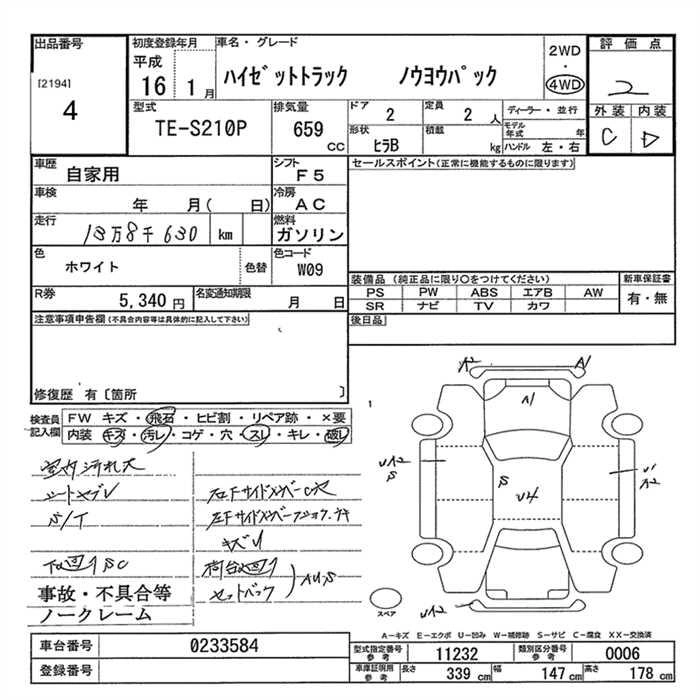 出品番号
[2194]
4
初度登録年月
平成
16 1月
車名・グレード
ハイゼットトラック ノウヨウパック
2WD
・
4WD
評価点
2
外装 内装
C D
型式
TE-S210P
排気量
659
CC
ドア
2
定員
2人
ディーラー・並行
モデル年式 年
形状
ヒラB
積載
kg
ハンドル 左・右
車歴
自家用
シフト
F5
車検
年 月( 日)
冷房
AC
走行
13万8千630 km
燃料
ガソリン
色
ホワイト
色替
色コード
W09
R券
5,340円
名変通知期限
月 日
セールスポイント(正常に機能するものに限ります)
装備品(純正品に限り○をつけてください)
PS PW ABS エアB AW
SR ナビ TV カワ
新車保証書
有・無
後日品
注意事項申告欄(不具合内容等は具体的に記入して下さい)
修復歴 有〔箇所 〕
検査員
記入欄
FW キズ・飛石・ヒビ割・リペア跡・×要
内装 キズ・汚レ・コゲ・穴・スレ・キレ・破レ
室内汚れ大
シートヤブレ
S/T
下廻りSC
事故・不具合等
ノークレーム
右Fサイドメンバー
左Fサイドメンバー
キズU
荷台廻り
セットバック
A2
A1
A1
UA2
S
S
U4
U1
A2
UA2
スペア
A-キズ E-エクボ U-凹み W-補修跡 S-サビ C-腐食 XX-交換済
車台番号
0233584
登録番号
型式指定番号
参考
11232
類別区分番号
参考
0006
車庫証明用
参考
長さ 339 cm
幅 147 cm
高さ 178 cm